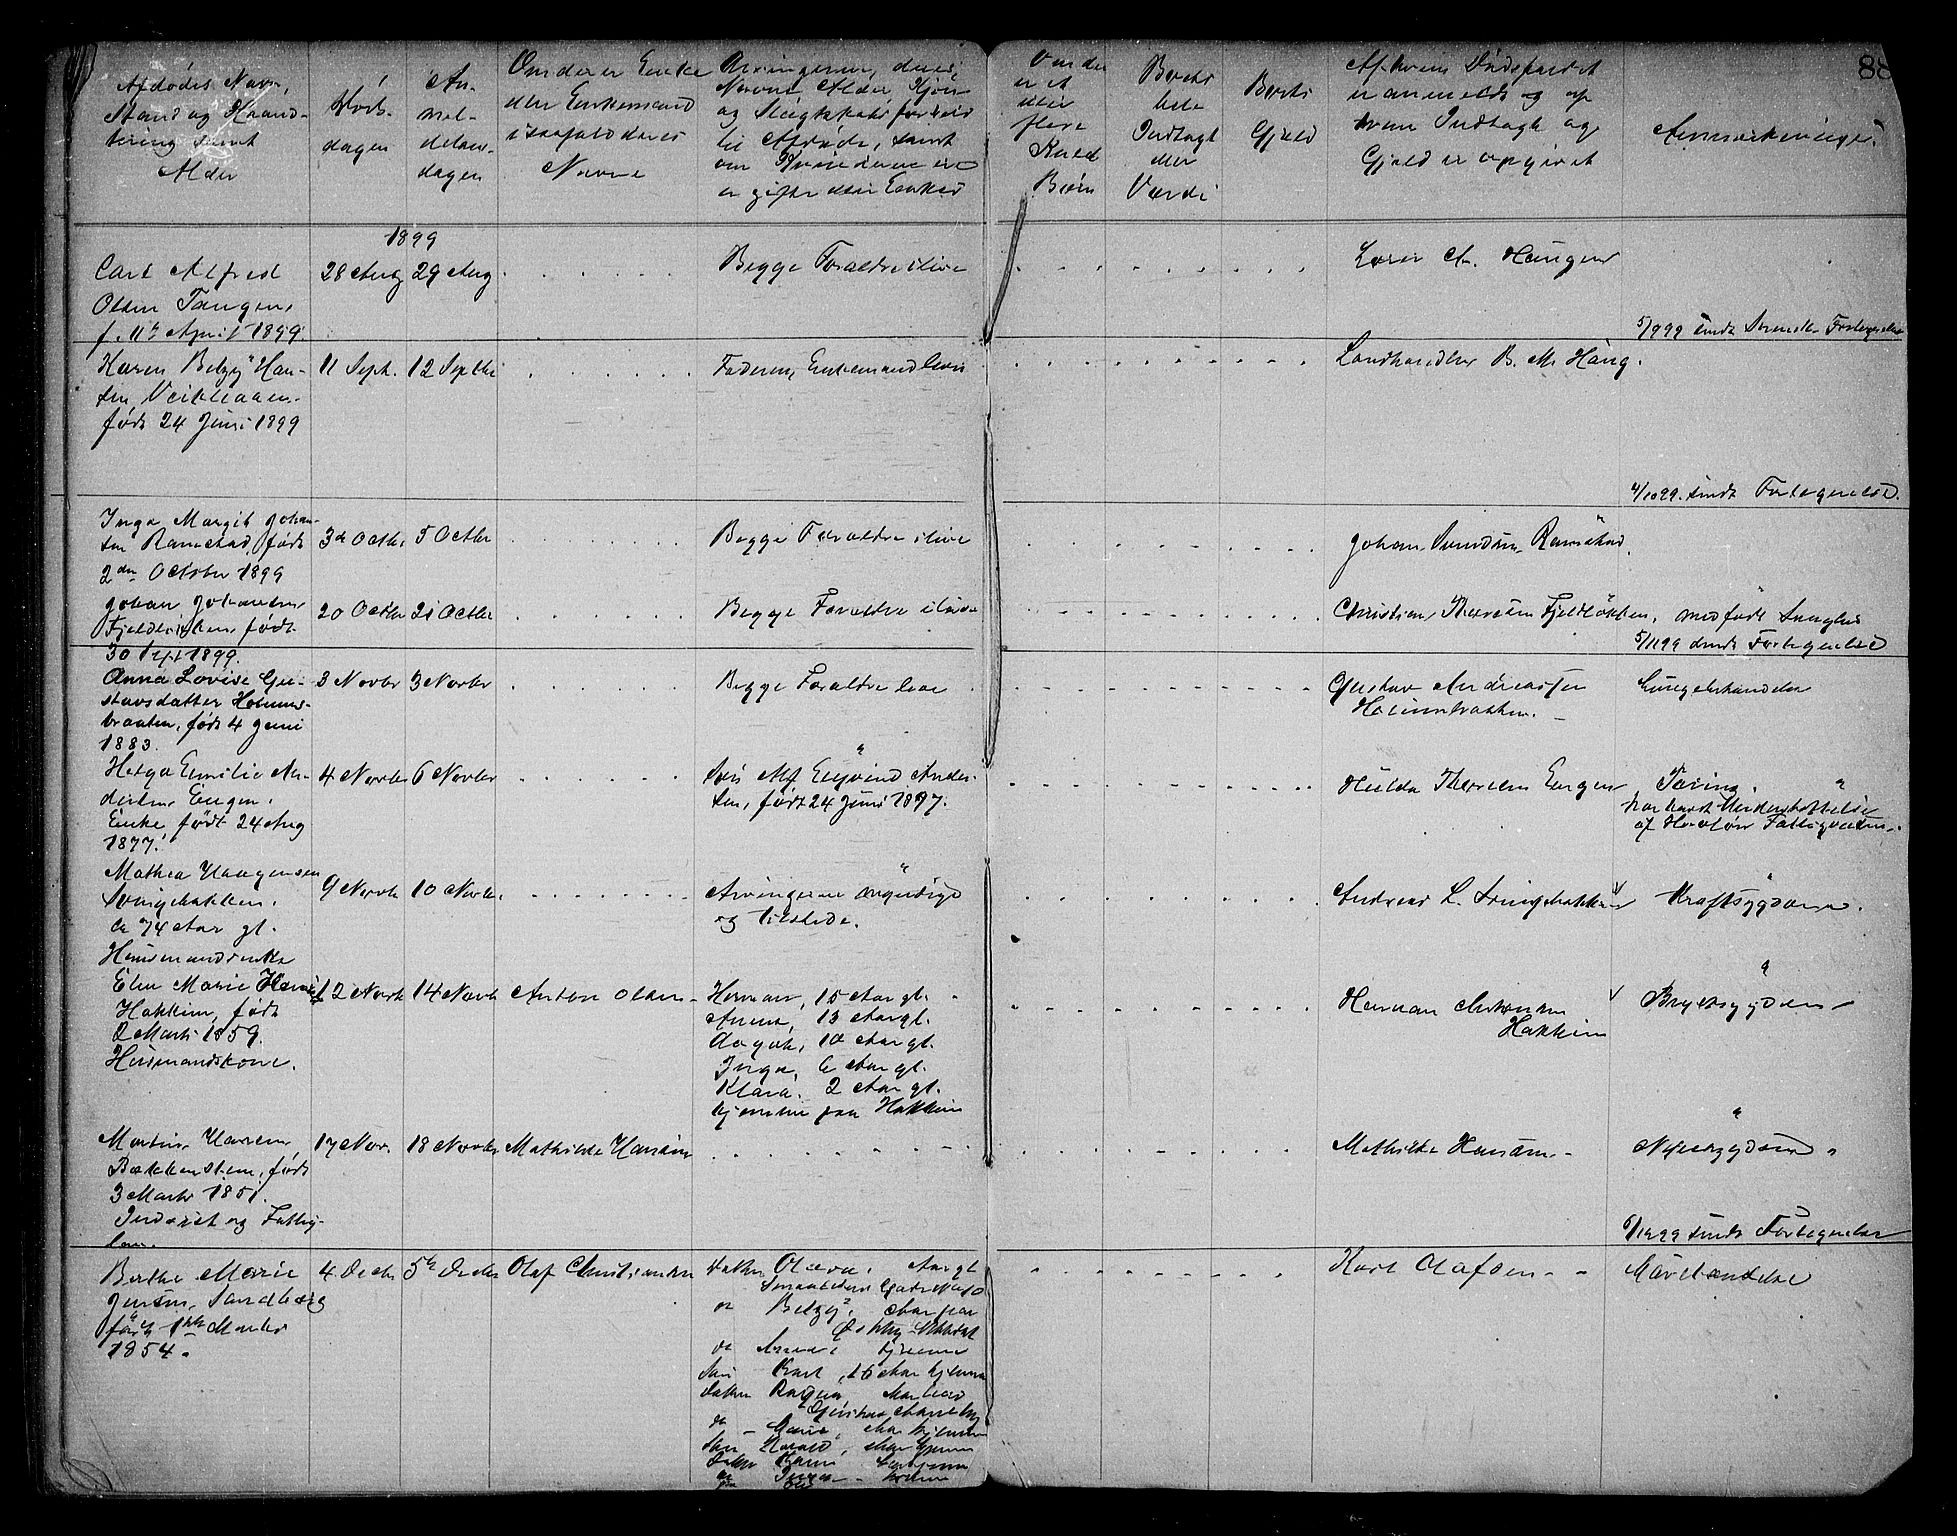 88
Afdødes Navn,
Stand og Haand-
tering samt
Alder
Døds-
dagen
An-
mel-
delses-
dagen
Om der er Enke
eller Enkemand
i saafald deres
Navne
Arvingernes, deres
Navne Alder Kjøn
og Slægtskabsforhold
til Afdøde, samt
om Kvinderne er
gifte eller Enker
Om der
er et
eller
flere
Kuld
Børn
Boets
hele
Indtægt
eller
Værdi
Boets
Gjæld
Af hvem Dødsfaldet
er anmeldt og af
hvem Indtægt og
Gjæld er opgivet
Anmærkninger
1899
Carl Alfred
Olsen Tangen,
f. 11te April 1899.
28 Aug
29 Aug
Begge Forældre ilive
Lærer A. Haugen
5/9 99 sendt Fortegnelse
Karen Betzy Han-
sen
født 24 Juni 1899
11 Sept.
12 Septbr
Faderen, Enkemand lever
Landhandler B. M. Haug.
4/10 99. sendt Fortegnelse.
Inga Margit Johan-
sen Ramstad, født
2den October 1899
3de Octbr
5 Octbr
Begge Forældre ilive
Johan Svendsen Ramstad.
Johan Johansen
født
30 Sept 1899.
20 Octbr
21 Octbr
Begge Forældre ilive
Christian Fjeldløkken,
medfødt
5/11 99 sendt Fortegnelse
Anna Lovise Gu-
stavsdatter Holmens-
braaten, født 4 Juni
1883.
3 Novbr
3 Novbr
Begge Forældre leve
Gustav Andreassen
Helga Emilie An-
dersen Engen.
Enke, født 24 Aug
1877.
4 Novbr
6 Novbr
Søn Alf Eyvind Ander-
sen, født 24 Juni 1897.
Hulda Engen
Tæring.
har havt Understøttelse
af Fattigvæsen.
Mathea Haagensen
Svingbakken.
ca 74 Aar gl.
Husmandsenke
9 Novbr
10 Novbr.
Arvingerne myndige
og tilstede.
Andreas L. Svingbakken
Kræftsygdom.
Elen Marie
Hakkim, født
2 Marts 1859.
Husmandskone.
12 Novb
14 Novb
Anton Olsen
Herman, 15 Aar gl.
Anna, 13 Aar gl.
Aagot, 10 Aar gl.
Inga, 6 Aar gl.
Klara, 2 Aar gl.
hjemme paa Hakkim
Herman Antonsen
Hakkim
Brystsygdom
Martin Hansen
Bækkenstein, født
3 Marts 1851.
Inderst og Fattig-
lem.
17 Nov.
18 Novbr
Mathilde Hansen
Mathilde Hansen
Nyresygdom
6/12 99 sendt Fortegnelse
Berthe Marie
Jensen, Sandberg
født 1ste Marts
1854.
4 Decbr
5te Decbr
Olaf Christiansen
Datter Olava, Aar gl
do Betzy, Aar paa
do hjemme
Søn Karl, 15 Aar hjemme
Datter Ragna
do Marie, Aar hjemme
Søn Harald, Aar hjemme
Datter hjemme
do Inga hjemme
Karl Olafsen